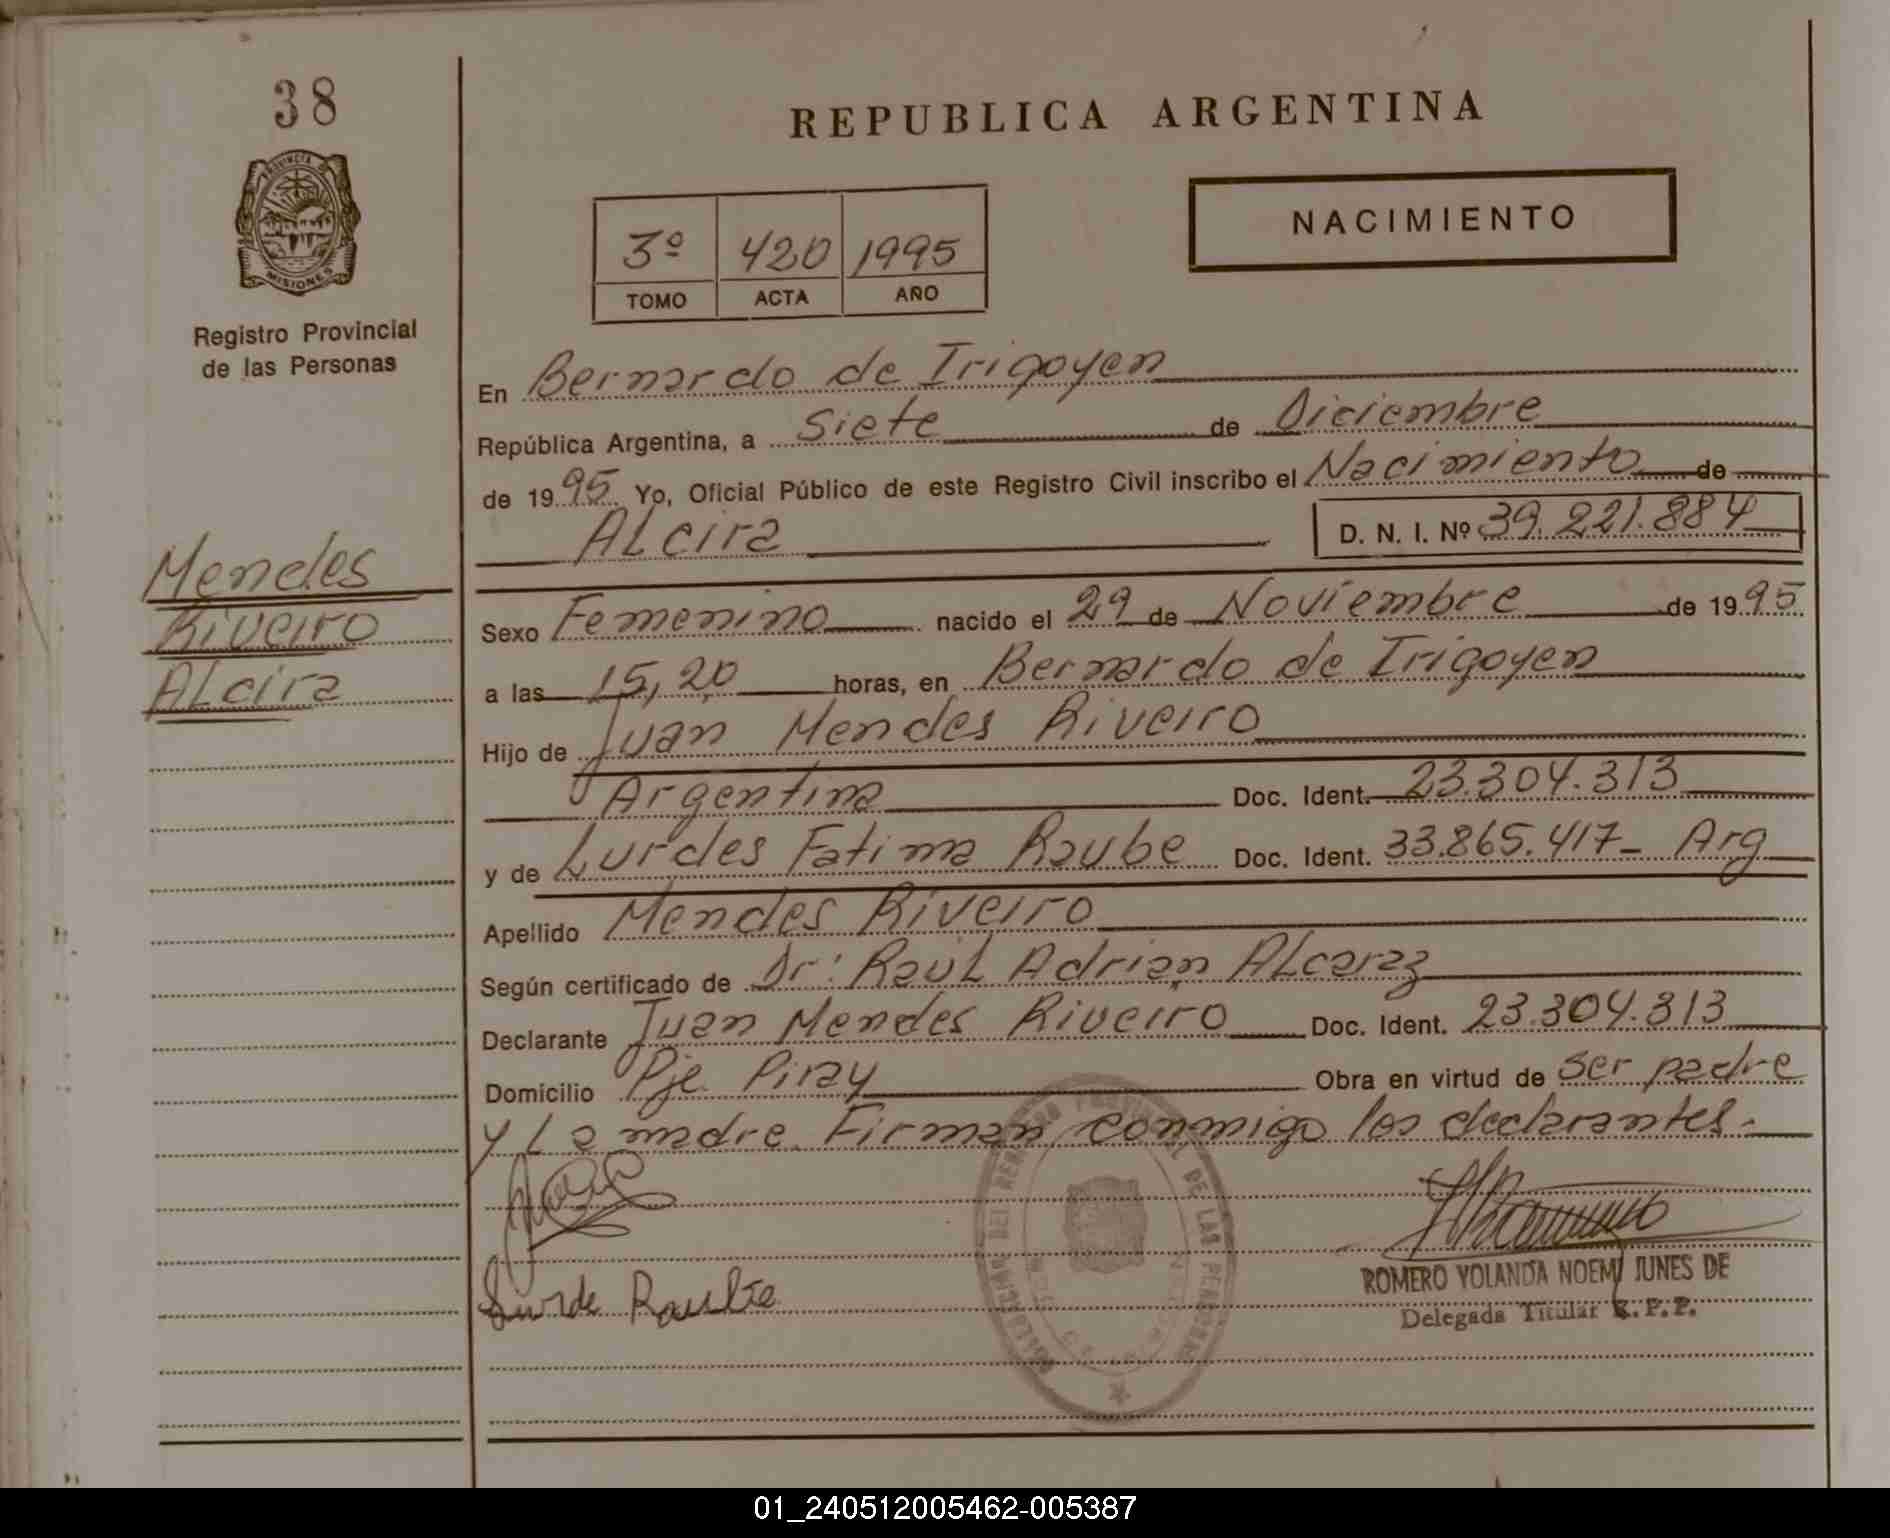 38
PROVINCIA DE
MISIONES
Registro Provincial
de las Personas
REPUBLICA ARGENTINA
NACIMIENTO
3º 420 1995
TOMO ACTA AÑO
En Bernardo de Irigoyen
República Argentina, a Siete de Diciembre
de 1995 Yo, Oficial Público de este Registro Civil inscribo el Nacimiento de
ALcira D. N. I. Nº 39.221.884
Mendes
Riveiro
ALcira
Sexo Femenino nacido el 29 de Noviembre de 1995
a las 15,20 horas, en Bernardo de Irigoyen
Hijo de Juan Mendes Riveiro
Argentina Doc. Ident. 23.304.313
y de Lurdes Fatima Raube Doc. Ident. 33.865.417- Arg
Apellido Mendes Riveiro
Según certificado de Dr: Raúl Adrian ALcaraz
Declarante Juan Mendes Riveiro Doc. Ident. 23.304.313
Domicilio Pje Piray Obra en virtud de ser padre
y La madre. Firman conmigo los declarantes.
Lurde Raube
ROMERO YOLANDA NOEMI JUNES DE
Delegada Titular R.P.P.
REGISTRO PROVINCIAL DE LAS PERSONAS
01_240512005462-005387